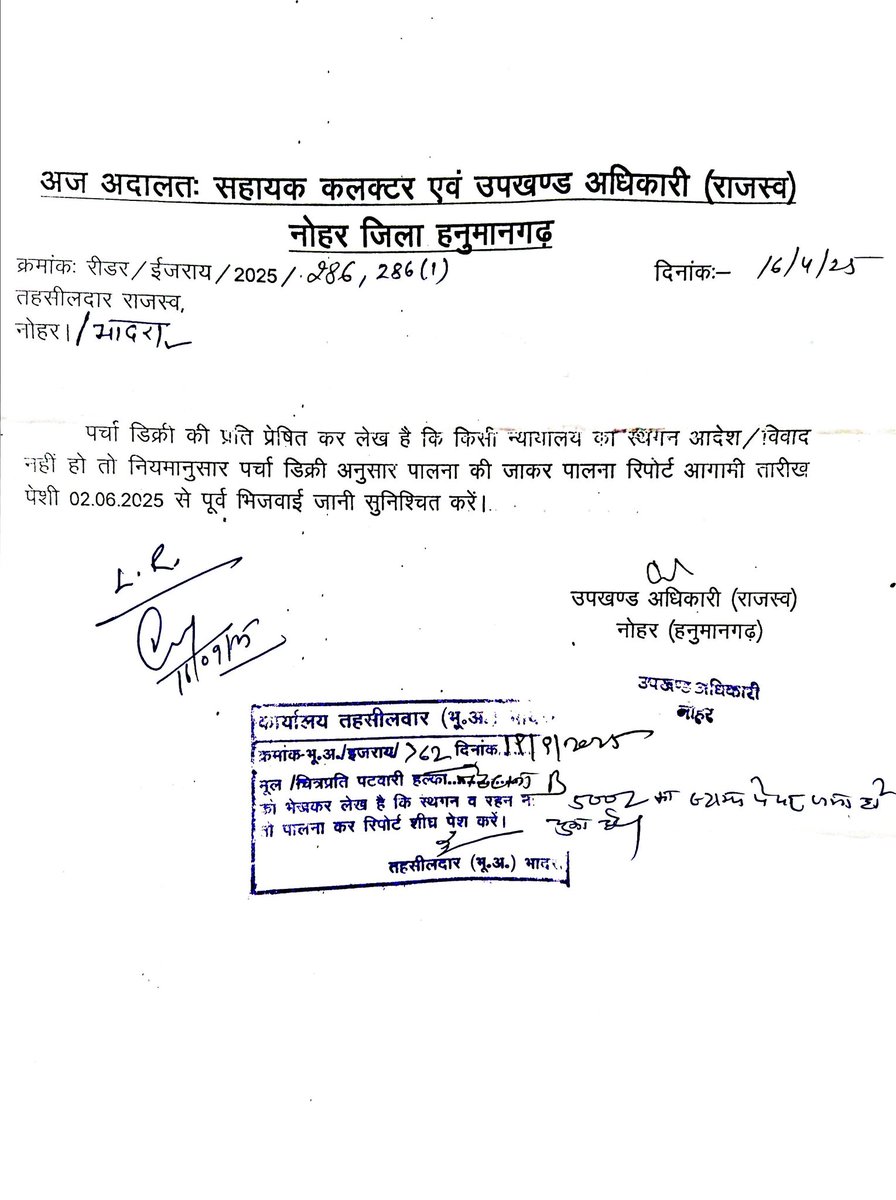 अज अदालतः सहायक कलक्टर एवं उपखण्ड अधिकारी (राजस्व)
नोहर जिला हनुमानगढ़
क्रमांकः रीडर/ईजराय/2025/. 286, 286(1) दिनांकः– 16/4/25
तहसीलदार राजस्व,
नोहर। / भादरा
पर्चा डिक्री की प्रति प्रेषित कर लेख है कि किसी न्यायालय का स्थगन आदेश/विवाद
नहीं हो तो नियमानुसार पर्चा डिक्री अनुसार पालना की जाकर पालना रिपोर्ट आगामी तारीख
पेशी 02.06.2025 से पूर्व भिजवाई जानी सुनिश्चित करें।
L.R.
उपखण्ड अधिकारी (राजस्व)
नोहर (हनुमानगढ़)
उपखण्ड अधिकारी
नोहर
कार्यालय तहसीलदार (भू.अ.)
क्रमांक-भू.अ./इजराय/762 दिनांक 18/9/2025
मूल/चित्रप्रति पटवारी हल्का B
को भेजकर लेख है कि स्थगन व रहन न
तो पालना कर रिपोर्ट शीघ्र पेश करें।
5002 का
चुका है।
तहसीलदार (भू.अ.) भादरा